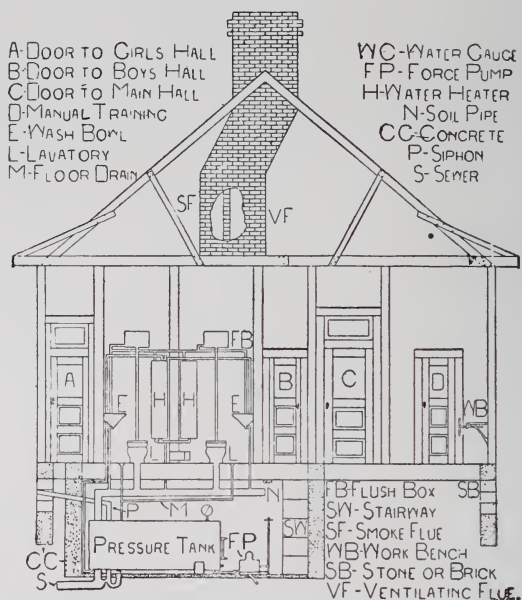 A-DOOR TO GIRLS HALL
B-DOOR TO BOYS HALL
C-DOOR TO MAIN HALL
D-MANUAL TRAINING
E-WASH BOWL
L-LAVATORY
M-FLOOR DRAIN
WC-WATER GAUGE
FP-FORCE PUMP
H-WATER HEATER
N-SOIL PIPE
CC-CONCRETE
P-SIPHON
S-SEWER
SF
VF
FB
A
E
H
H
E
B
C
D
WB
L
L
P
M
N
SW
PRESSURE TANK
FP
CC
S
FB-FLUSH BOX
SB
SW-STAIRWAY
SF-SMOKE FLUE
WB-WORK BENCH
SB-STONE OR BRICK
VF-VENTILATING FLUE.